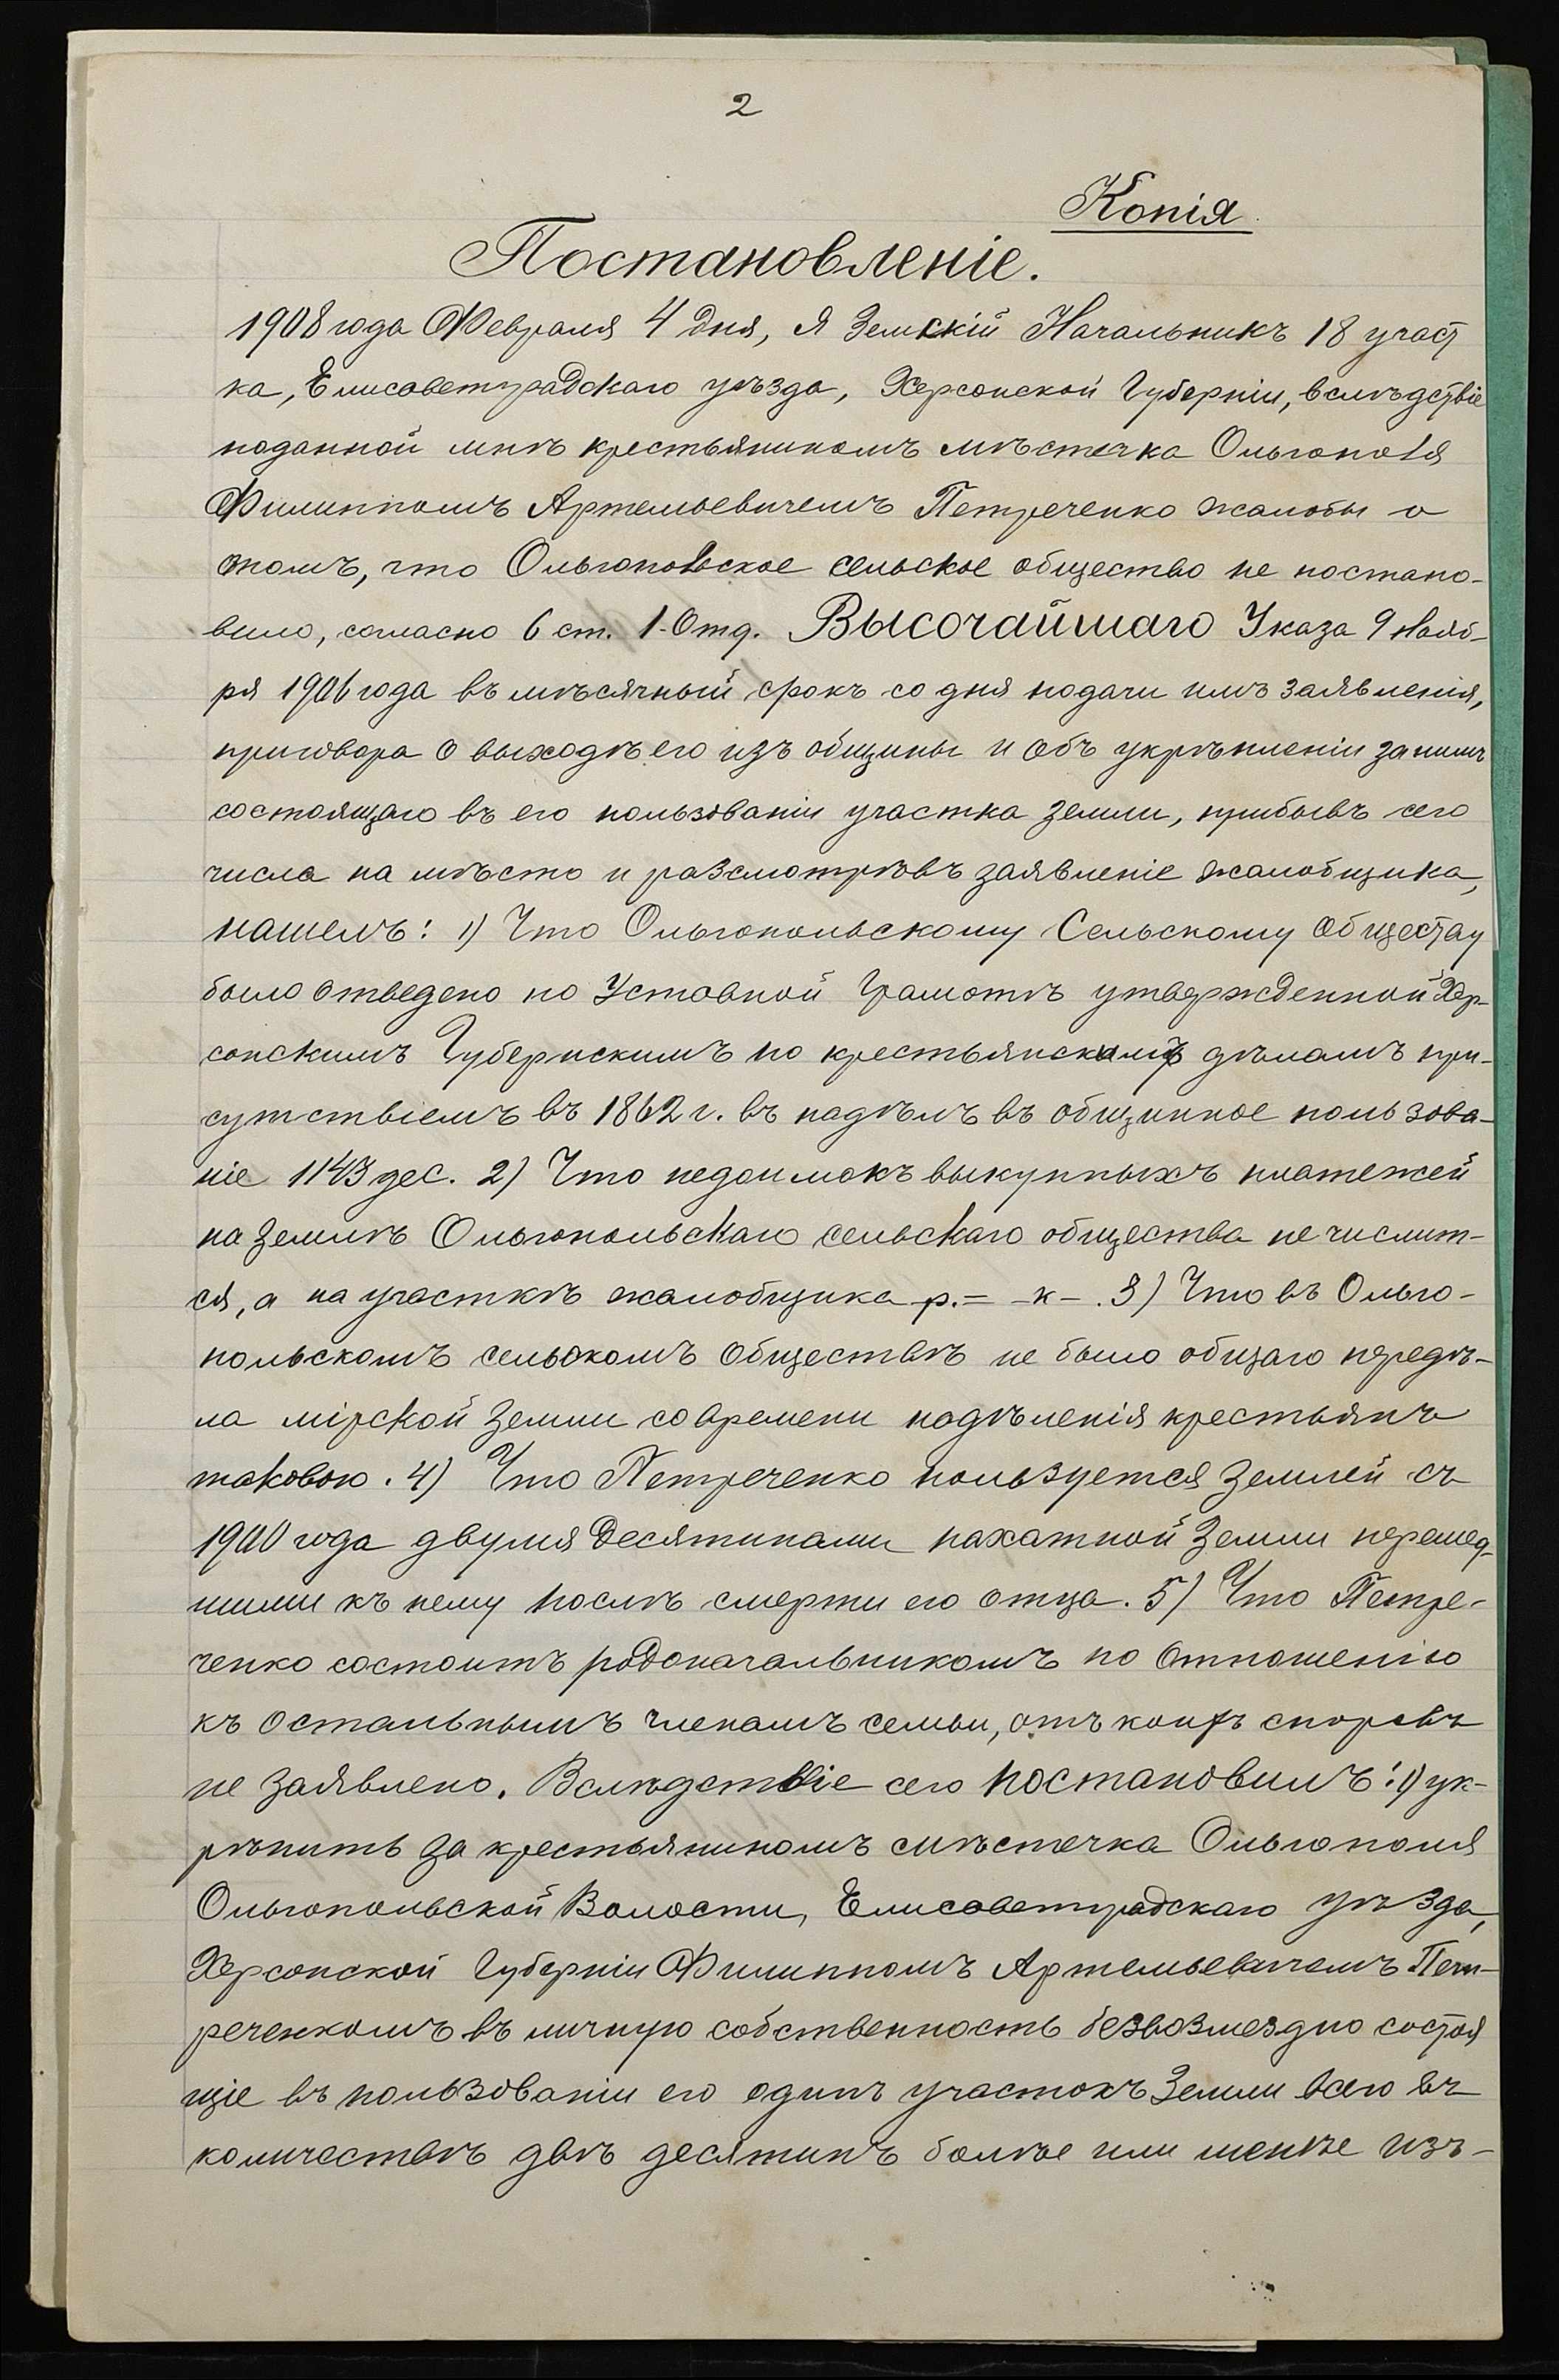 2
Копія
Постановленіе.
1908 года Февраля 4 дня, я Земскій Начальникъ 18 участ
ка, Елисаветградскаго уѣзда, Херсонской Губерніи, вслѣдствіе
поданной мнѣ крестьяниномъ мѣстечка Ольгополя
Филиппомъ Артемьевичемъ Петреченко жалобы о
томъ, что Ольгопольское сельское общество не постано-
вило, согласно 6 ст. 1 Отд. Высочайшаго Указа 9 Нояб-
ря 1906 года въ мѣсячный срокъ со дня подачи имъ заявленія,
приговора о выходѣ его изъ общины и объ укрѣпленіи за нимъ
состоящаго въ его пользованіи участка земли, прибывъ сего
числа на мѣсто и разсмотрѣвъ заявленіе жалобщика,
нашелъ: 1) Что Ольгопольскому Сельскому Обществу
было отведено по Уставной Грамотѣ утвержденной Хер-
сонскимъ Губернскимъ по крестьянскимъ дѣламъ при-
сутствіемъ въ 1862 г. въ надѣлъ въ общинное пользова-
ніе 1143 дес. 2) Что недоимокъ выкупныхъ платежей
на землѣ Ольгопольскаго сельскаго общества не числит-
ся, а на участкѣ жалобщика р. = - к - . 3) Что въ Ольго-
польскомъ сельскомъ обществѣ не было общаго передѣ-
ла мірской земли со времени надѣленія крестьянъ
таковою. 4) Что Петреченко пользуется землей съ
1900 года двумя десятинами пахатной земли перешед-
шими къ нему послѣ смерти его отца. 5) Что Петре-
ченко состоитъ родоначальникомъ по отношенію
къ остальнымъ членамъ семьи, отъ коихъ споровъ
не заявлено. Вслѣдствіе сего постановилъ: 1) ук-
рѣпить за крестьяниномъ мѣстечка Ольгополя
Ольгопольской Волости, Елисаветградскаго уѣзда,
Херсонской Губерніи Филиппомъ Артемьевичемъ Пет-
реченкомъ въ личную собственность безвозмездно состоя
щіе въ пользованіи его одинъ участокъ земли всего въ
количествѣ двѣ десятинъ болѣе или менѣе изъ-